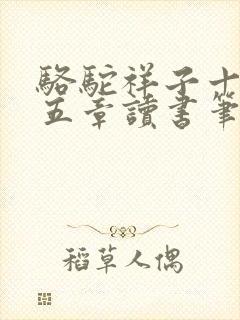 駱駝祥子十
五章讀書筆
稻草人偶